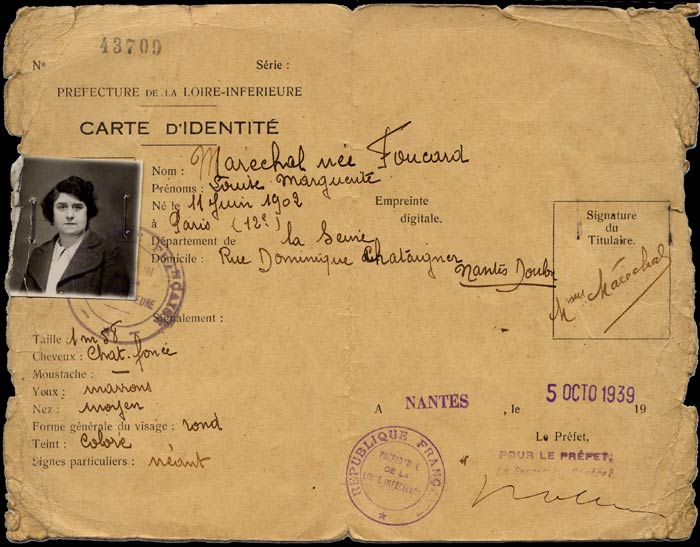 43709
Nº Série :
PREFECTURE DE LA LOIRE-INFERIEURE
CARTE D'IDENTITÉ
Nom : Maréchal née Foucard
Prénoms : Louise Marguerite
Né le 11 Juin 1902
à Paris (12e)
Département de la Seine
Domicile : Rue Dominique Chataigner
Nantes Doulon
Empreinte
digitale.
Signature
du
Titulaire.
Mme Maréchal
Signalement :
Taille : 1m58
Cheveux : Chat. foncé
Moustache : —
Yeux : marrons
Nez : moyen
Forme générale du visage : rond
Teint : coloré
Signes particuliers : néant
A NANTES , le 5 OCTO 1939 19
Le Préfet,
POUR LE PRÉFET,
REPUBLIQUE FRANÇ
PREFECTURE
DE LA
LOIRE INFERIEURE